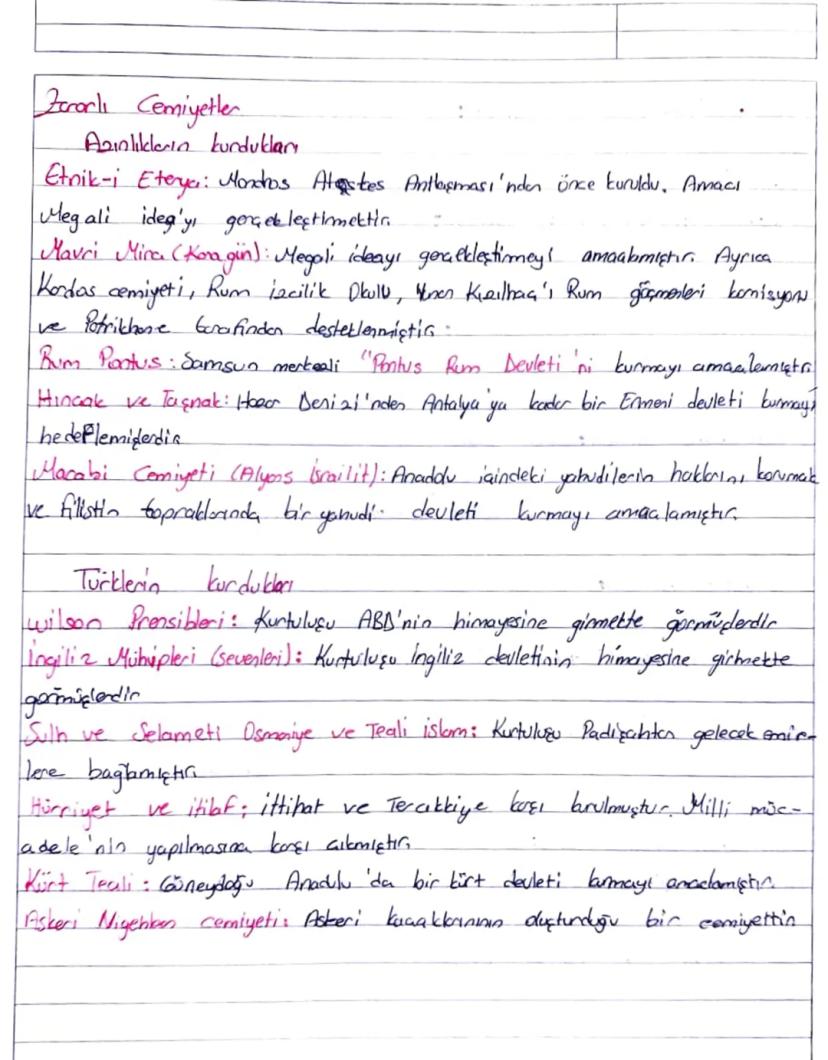 Zararlı Cemiyetler
Azınlıkların kurdukları
Etnik-i Eterya: Mondros Ateşkes Antlaşması'ndan önce kuruldu. Amacı
Megali idea'yı gerçekleştirmektir.
Mavri Mira (Kara gün): Megali ideayı gerçekleştirmeyi amaçlamıştır. Ayrıca
Kordas cemiyeti, Rum izcilik Okulu, Yunan Kızılhaç'ı Rum göçmenleri komisyonu
ve Patrikhane tarafından desteklenmiştir.
Rum Pontus: Samsun merkezli "Pontus Rum Devleti'ni kurmayı amaçlamıştır
Hınçak ve Taşnak: Hazar Denizi'nden Antalya'ya kadar bir Ermeni devleti kurmayı
hedeflemişlerdir
Macabi Cemiyeti (Alyans İsrailit): Anadolu içindeki yahudilerin haklarını korumak
ve filistin topraklarında bir yahudi devleti kurmayı amaçlamıştır.
Türklerin kurdukları
Wilson Prensibleri: Kurtuluşu ABD'nin himayesine girmekte görmüşlerdir
İngiliz Muhipleri (sevenleri): Kurtuluşu İngiliz devletinin himayesine girmekte
görmüşlerdir
Sulh ve Selameti Osmaniye ve Teali islam: Kurtuluşu Padişahtan gelecek emir-
lere bağlamıştır.
Hürriyet ve itilaf: ittihat ve Terakkiye karşı kurulmuştur. Milli müc-
adele'nin yapılmasına karşı çıkmıştır.
Kürt Teali: Güneydoğu Anadolu'da bir kürt devleti kurmayı amaçlamıştır.
Askeri Nigehban cemiyeti: Askeri kaçaklarının oluşturduğu bir cemiyettir